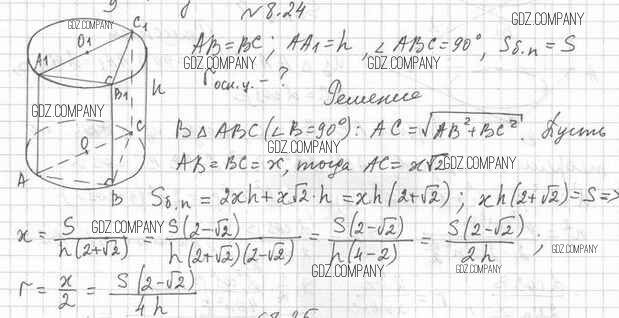 №8.24
GDZ.COMPANY
C1
O1
A1
B1
h
C
O
A
B
AB=BC; AA1=h, ∠ABC=90°, Sб.п=S
rосн.ц. - ?
Решение
В △ABC(∠B=90°): AC=√(AB²+BC²). Пусть
AB=BC=x, тогда AC=x√2
Sб.п = 2xh+x√2·h =xh(2+√2); xh(2+√2)=S=>
x= S/(h(2+√2)) = S(2-√2)/(h(2+√2)(2-√2)) = S(2-√2)/(h(4-2)) = S(2-√2)/(2h);
r= x/2 = S(2-√2)/(4h)
GDZ.COMPANY
GDZ.COMPANY
GDZ.COMPANY
GDZ.COMPANY
GDZ.COMPANY
GDZ.COMPANY
GDZ.COMPANY
GDZ.COMPANY
GDZ.COMPANY